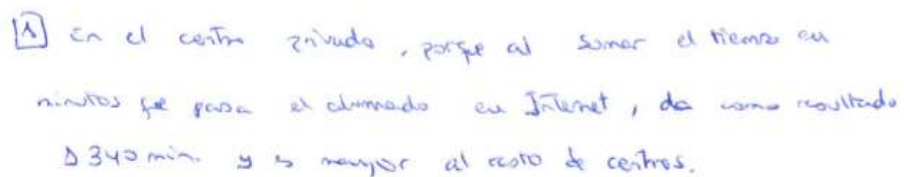 1 En el centro privado, porque al sumar el tiempo en
minutos que pasa el alumnado en Internet, da como resultado
1340 min. y es mayor al resto de centros.